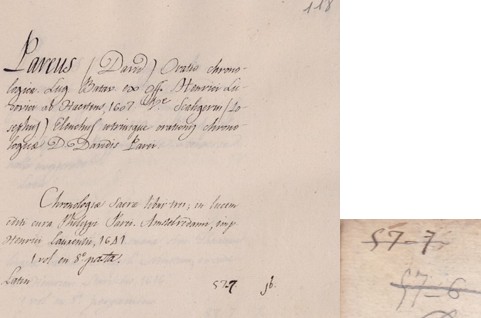 118
Pareus (David) Oratio chrono-
logica. Lug Batav ex off. Henrici Lu-
dovici ab Haestens, 1607. Scaligeri (Jo
sephus) Elenchus utriusque orationis chrono-
logicæ D. Davidis Parei.
Chronologiæ Sacræ liber tres, in lucem
editi cura Philippi Parei. Amstelredami, imp
Henrici Laurentii, 1641
1 vol en 8º
Latin 57-7 jb.
57-7.
57-6